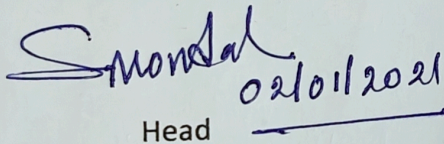 Smondal
02/01/2021
Head